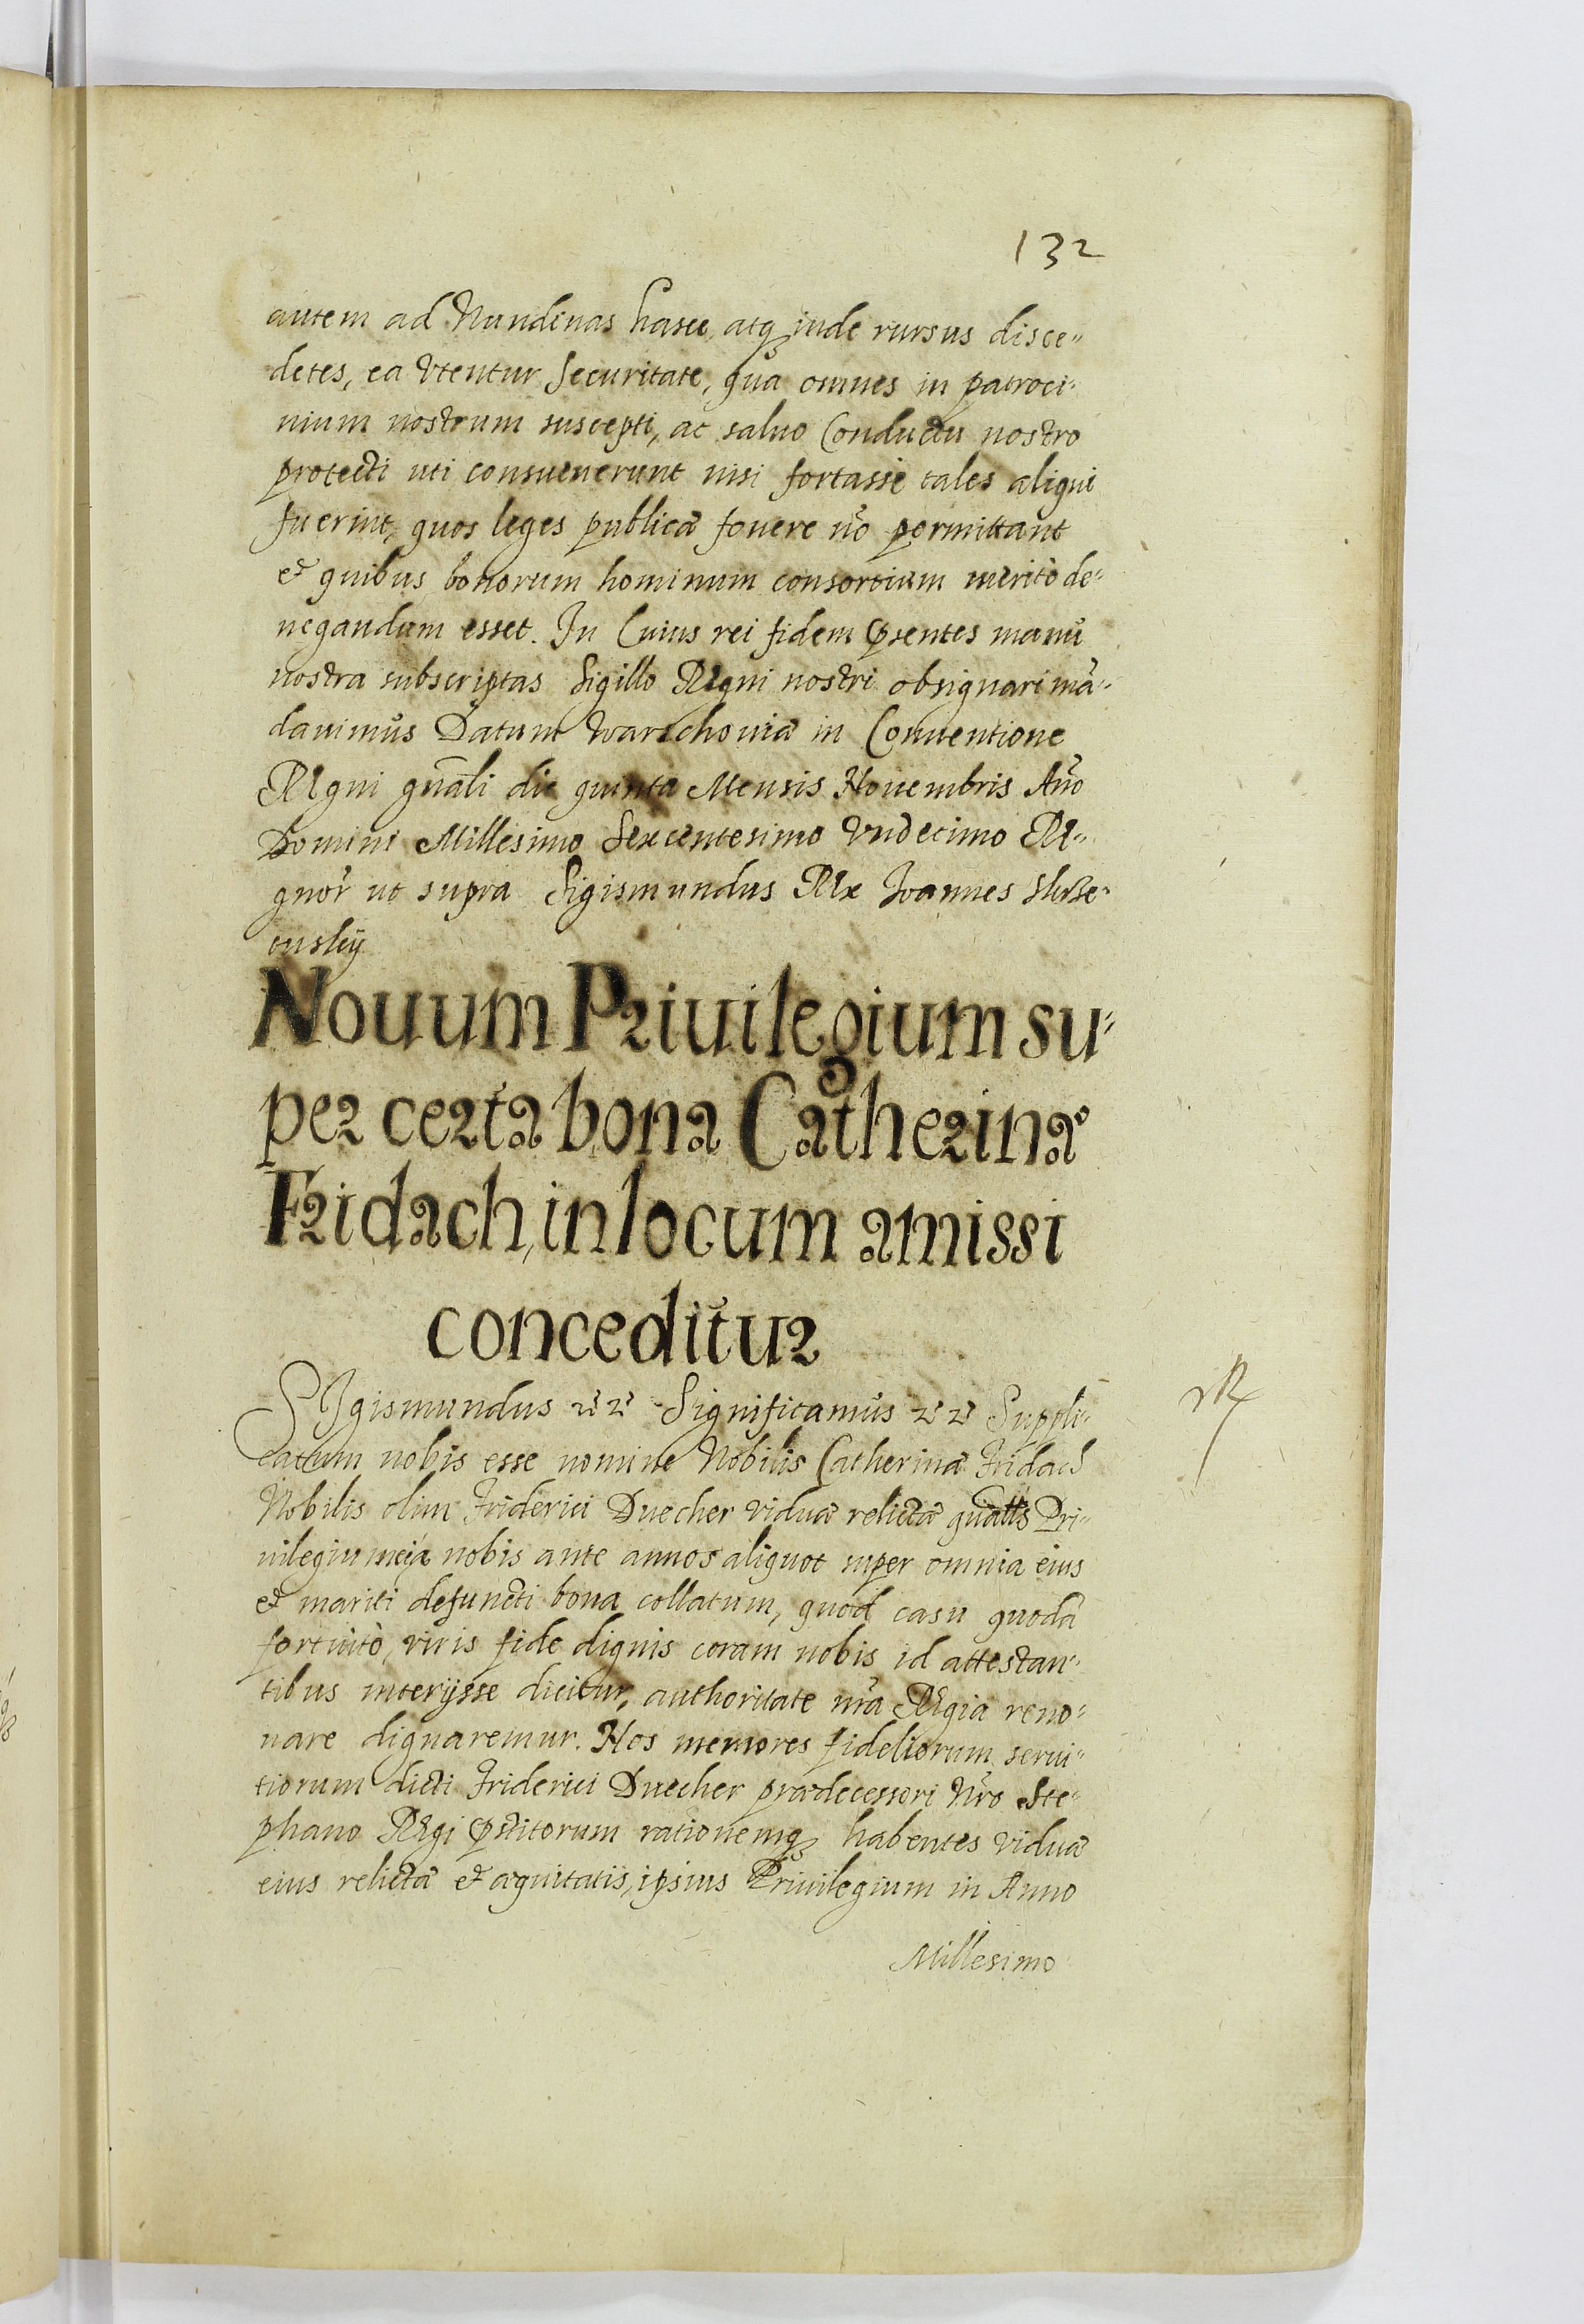 132
autem ad Nundinas hasce, atqꝫ inde rursus disce„
dētes, ea Vtentur Securitate, qua omnes in patroci-
nium nostrum suscepti, ac saluo Conductu nostro
protecti uti consueuerunt nisi fortasse tales aliqui
fuerint, quos leges publicæ fouere nō permittant
et quibus bonorum hominum consortium meritò de-
negandum esset. In Cuius rei fidem psentes manu
nostra subscriptas Sigillo Regni nostri obsignari mā-
dauimus Datum Warschouiæ in Conuentione
Regni gnāli die quinta Mensis Nouembris Año
Domini Millesimo Sexcentesimo Vndecimo Re-
gnor̃ ut supra Sigismundus Rex Ioannes
Nouum Priuilegium su-
per certa bona Catherinæ
Fridach, in locum amissi
conceditur
SIgismundus ꝛc̃ ꝛc̃ Significamus ꝛc̃ ꝛc̃ Suppli-
catum nobis esse nomine Nobilis Catherinæ Fridach
Nobilis olim Friderici Duecher Viduæ relictæ Pri-
uilegium nobis ante annos aliquot super omnia eius
et mariti defuncti bona collatum, quod casu quodā
fortuitò, viris fide dignis coram nobis id attestan-
tibus interijsse dicitur, authoritate nr̃a Regia reno-
uare dignaremur. Nos memores fideliorum serui-
tiorum dicti Friderici Duecher prædecessori Nr̃o Ste-
phano Regi pstitorum rationemqꝫ habentes viduæ
eius relictæ et æquitatis, ipsius Priuilegium in Anno
Millesimo